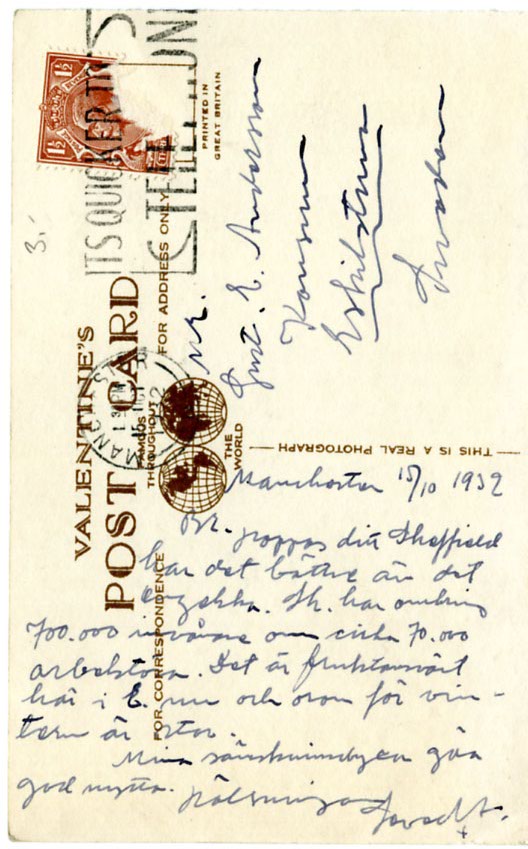 1½ 1½
ITS QUICKER TO
TELEPHONE
PRINTED IN
GREAT BRITAIN
3.-
VALENTINE'S
POST CARD
FOR ADDRESS ONLY
FAMOUS
THROUGHOUT
THE
WORLD
FOR CORRESPONDENCE
THIS IS A REAL PHOTOGRAPH
MANC
1932
Mr.
Gust. E. Andersson
Konsum
Eskilstuna
Sweden
Manchester 15/10 1932
Br. hoppas ditt Sheffield
har det bättre än det
engelska. Sh. har omkring
700.000 invånare om cirka 70.000
arbetslösa. Det är fruktansvärt
här i E. nu och oron för vin-
tern är stor.
Mina göra
god nytta. Hälsningar